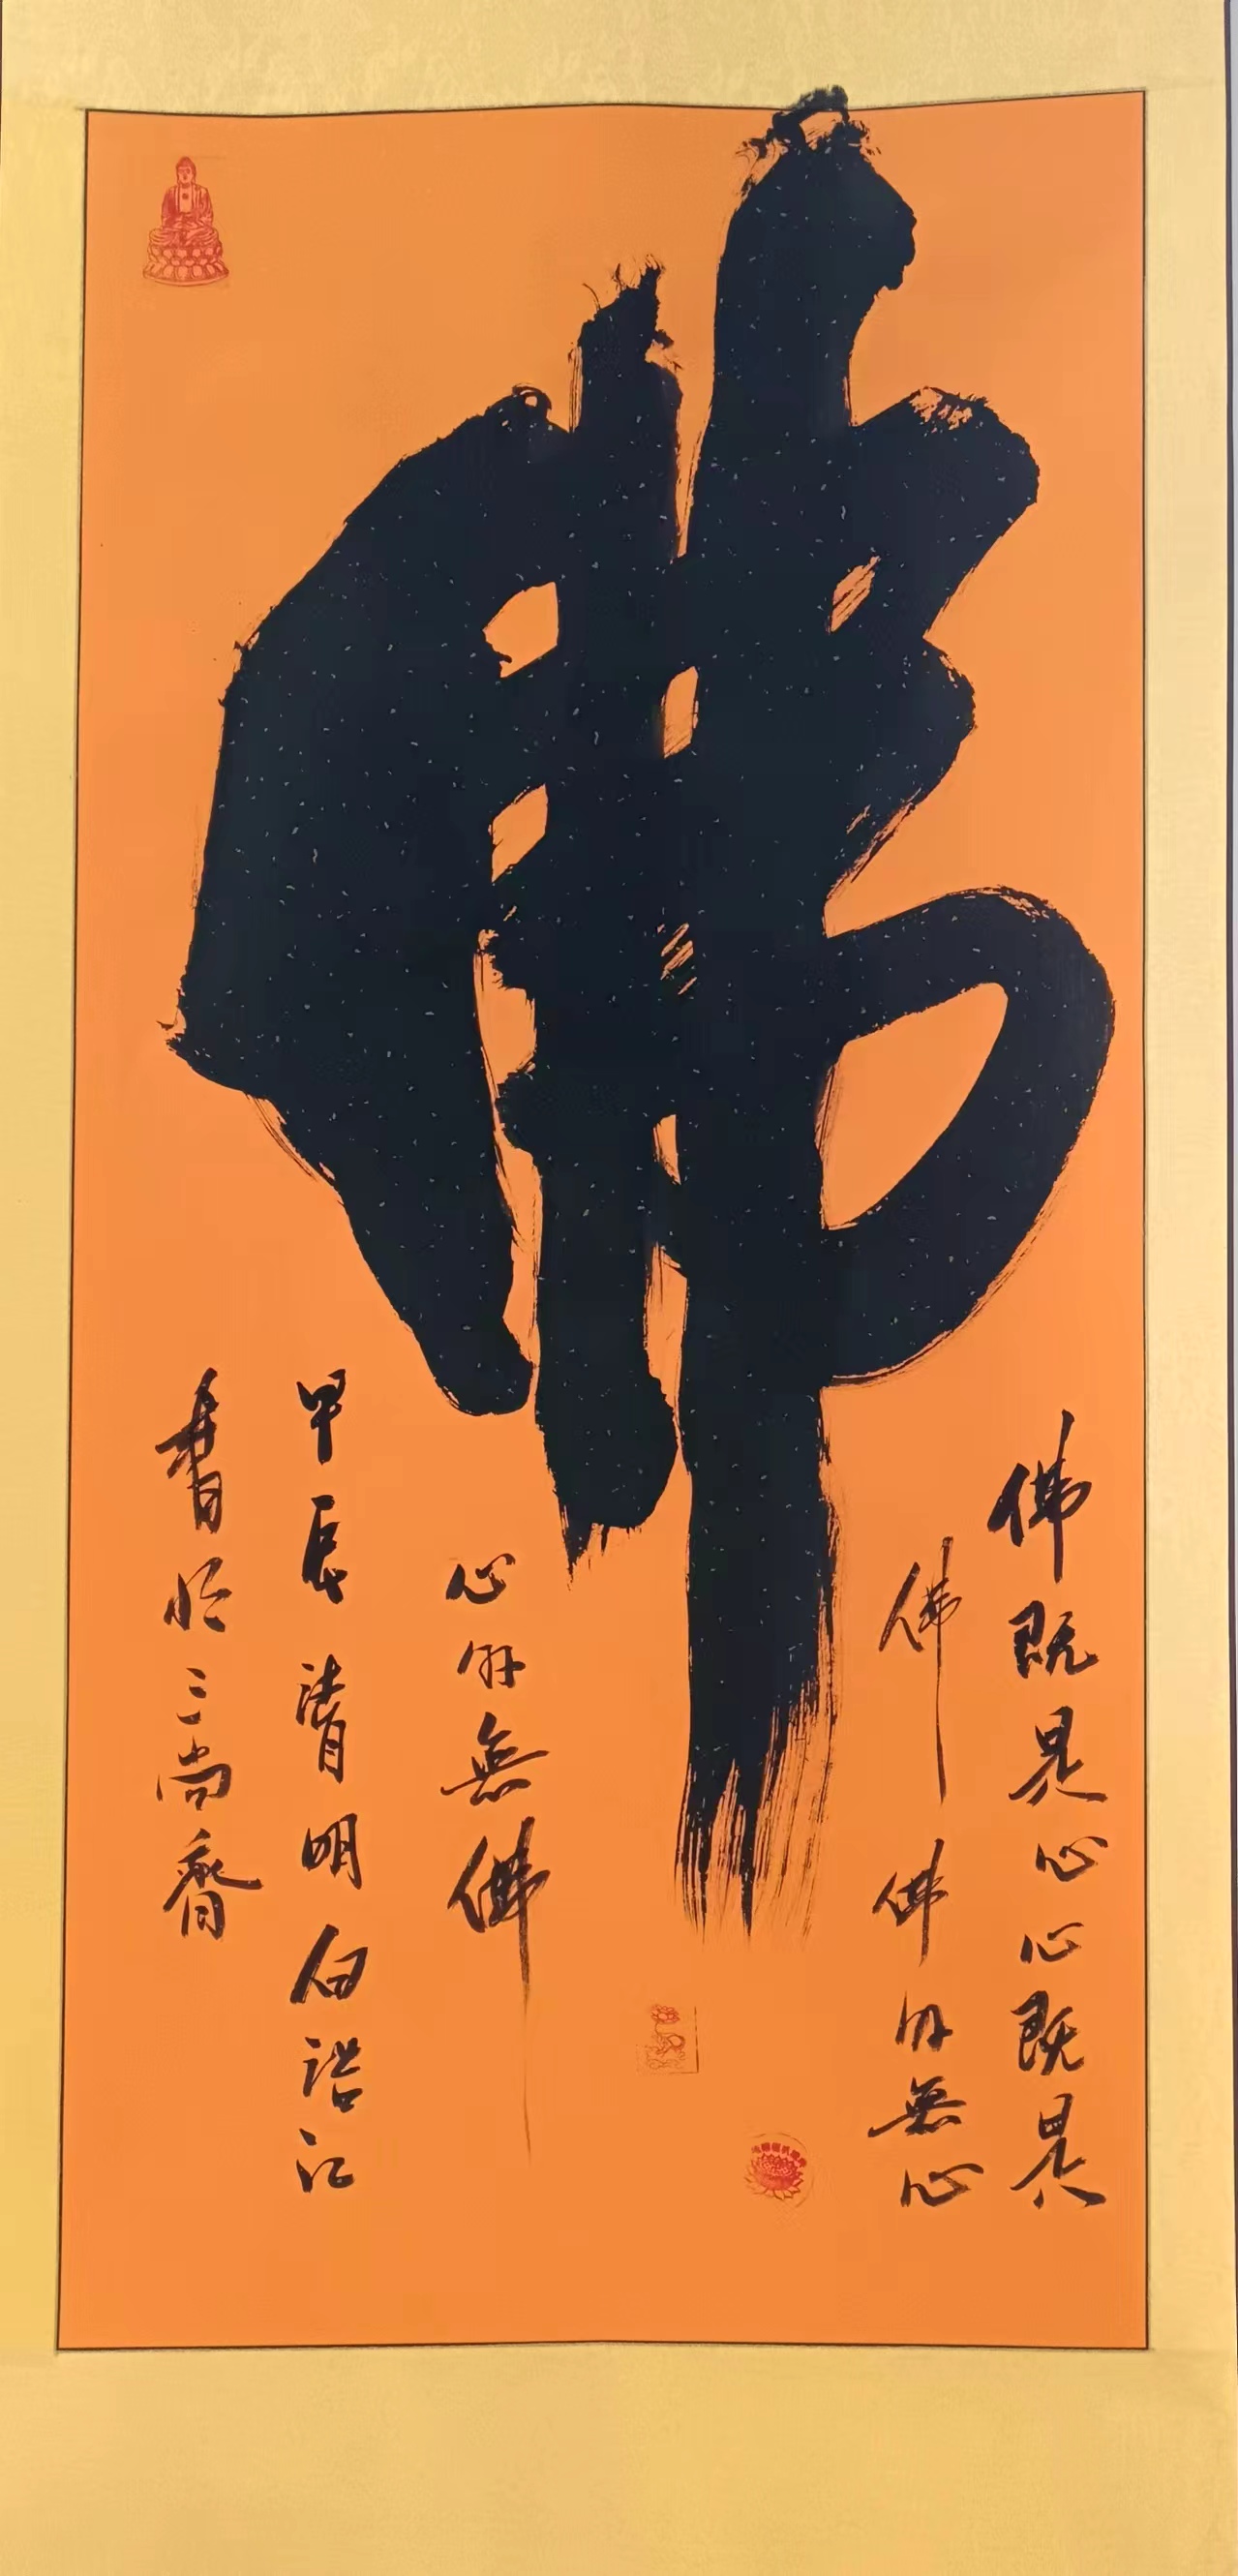 佛
佛既是心心既是
佛佛外無心
心外無佛
甲辰清明白江
書於三尚齋